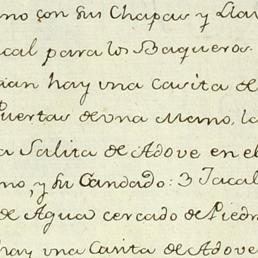 no con sus Chapas y Llav
cal para los Baqueros.
an hay una casita de
Puertas de una Mano, la
a Salita de Adove en el
mo, y su Candado: 3 Jacal
de Agua cercado de Piedr
hay una Casita de Adove